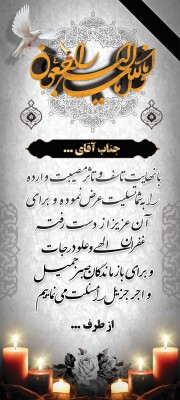 انا لله و انا الیه راجعون
جناب آقای ...
با نهایت تاسف و تاثر مصیبت وارده
را به شما تسلیت عرض نموده و برای
آن عزیز از دست رفته
غفران الهی و علو درجات
و برای بازماندگان صبر جمیل
و اجر جزیل را مسئلت می نماییم
از طرف ...